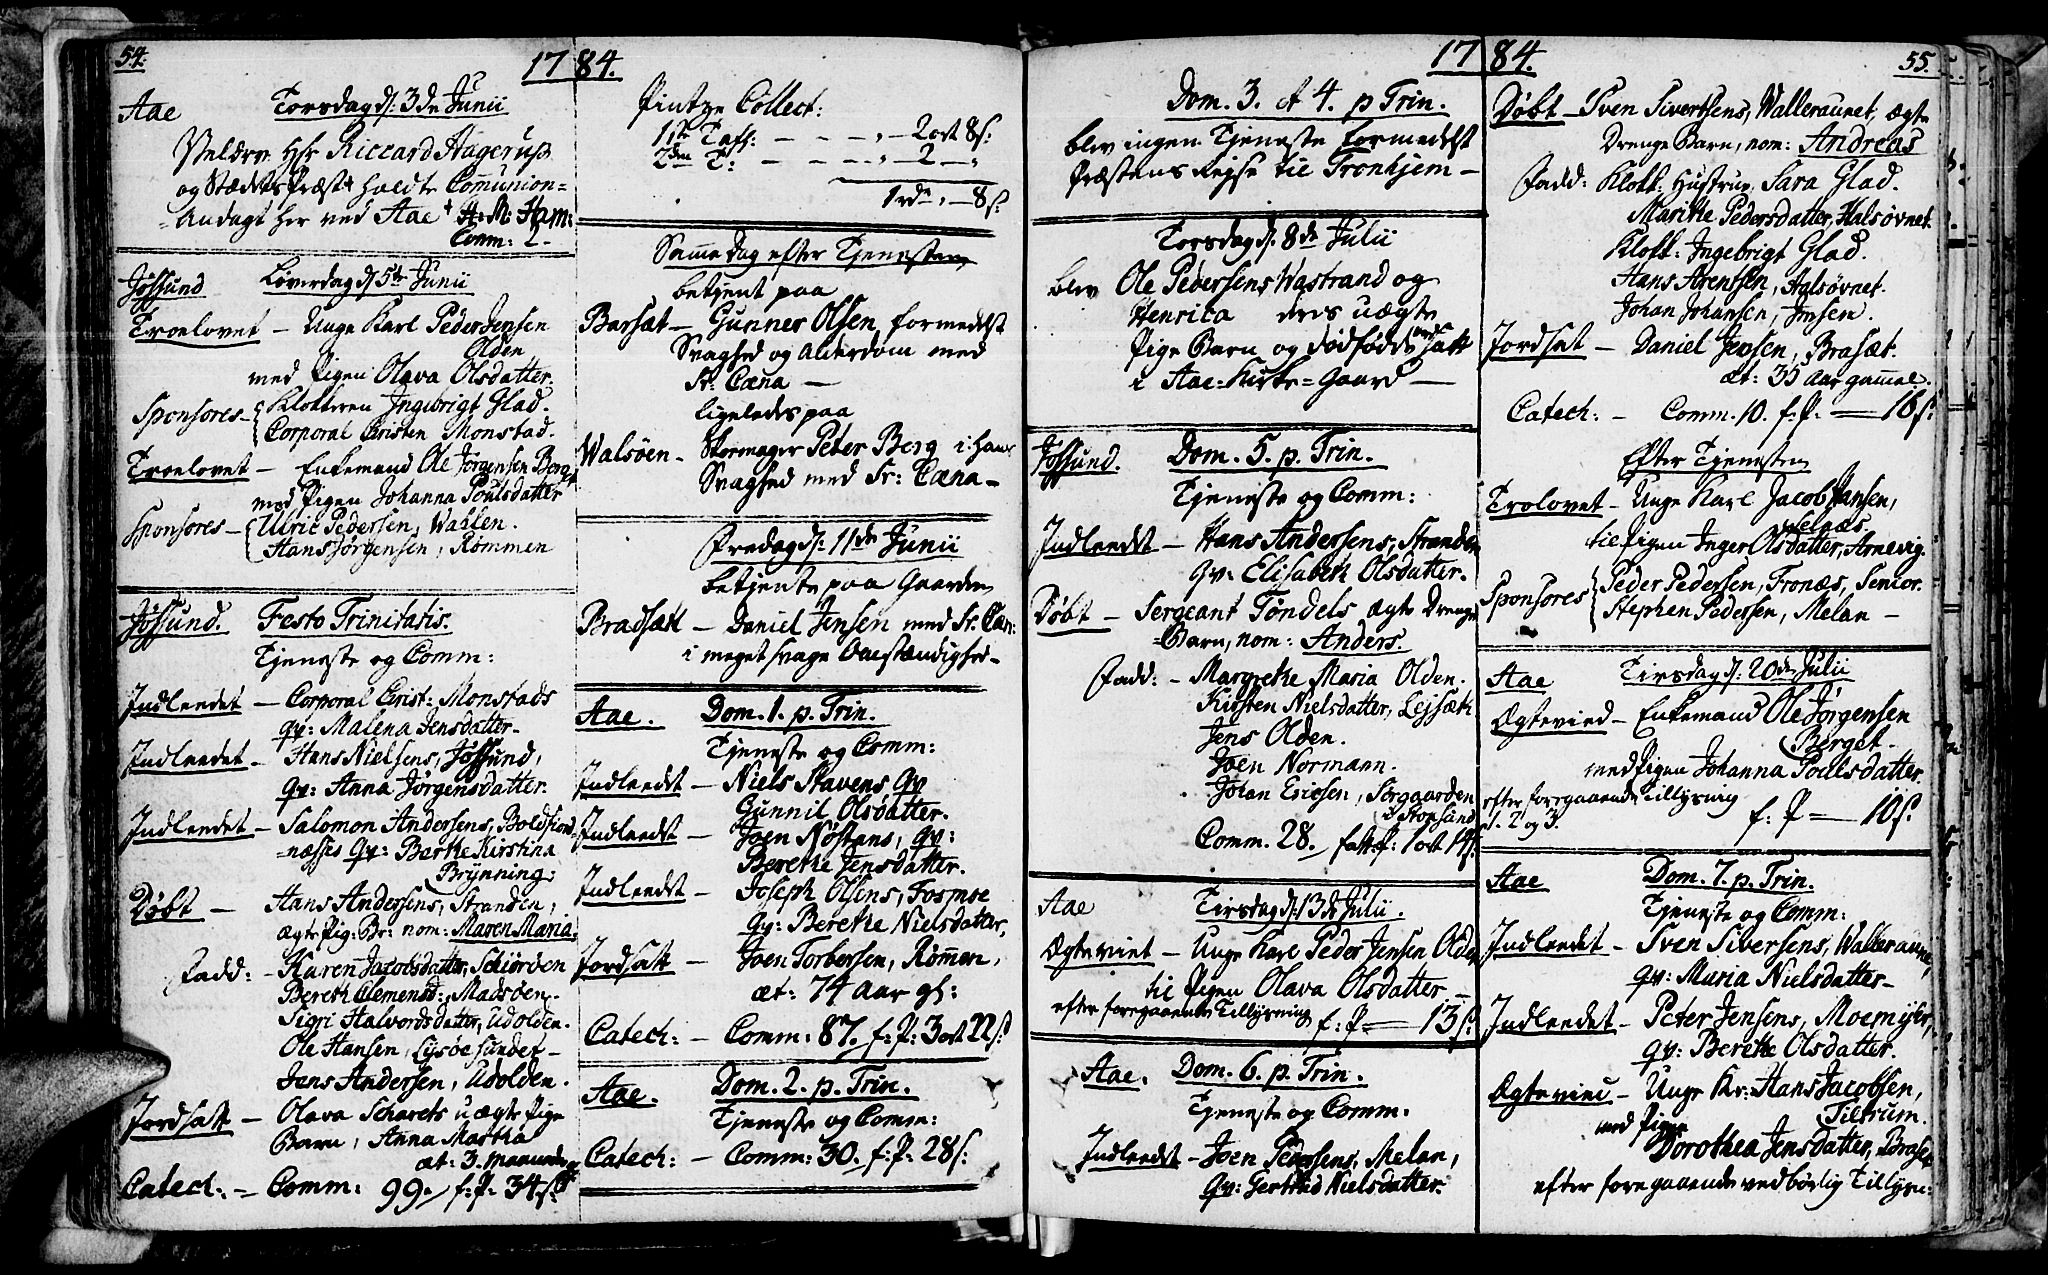 54.
1784.
Aae
Torsdag d: 3de Junii
Velærv. Hr Riccard Hagerup
og Stædets Præst holdte Communion=
=Andagt her ved Aae + H: M: Ham:
Comm: 2-
Jøssund
Løverdag d. 5te Junii
Troelovet - Unge Karl Peder Jensen
Olden
med Pigen Olava Olsdatter.
Sponsores - Klokkeren Ingebrigt Glad.
Corporal Cristen Monstad.
Troelovet - Enkemand Ole Jørgensen Berg
med Pigen Johanna Poulsdatter
Sponsores - Ulric Pedersen, Wahlen.
Hans Jørgensen, Rømmen
Jøssund.
Festo Trinitatis.
Tjeneste og Comm:
Indleedet - Corporal Crist: Monstads
qv: Malena Jensdatter-
Indleedet - Hans Nielsens, Jøssund,
Qv: Anna Jørgensdatter.
Indleedet - Salomon Andersens, Boldfiord=
=næsses Qv: Berthe Kirstina
Brynning:
Døbt - Hans Andersens, Stranden,
ægte Pig: Br: nom: Maren Maria.
Fadd: - Karen Jacobsdatter, Schiørøen
Bereth Clemensd: Madsøen.
Sigri Halvordsdatter, Udolden.
Ole Hansen, Lysøesundet-
Jens Andersen, Udolden.
Jordsatt - Olava Scharets uægte Pige
Barn, Anna Martha
æt: 3. Maaneder
Catech: - Comm: 99. f: P: 34. s:
Pintze Collect:
1ste Tafl: - - - " - 2 ort 8 s:
2den T: - - - " - 2 - "
1 rd " - 8 s:
Samme Dag efter Tjenesten
betjent paa
Barsæt - Gunner Olsen formedelst
Svaghed og Alderdom med
Sr: Cæna -
Ligeledes paa
Walsøen - Skormager Peter Berg i hans
Svaghed med Sr: Cæna -
Fredag d: 11de Junii
betjente paa Gaarden
Bradsætt - Daniel Jensen med Sr. Cæn:
i meget svage Omstændighed-
Aae.
Dom. 1. p. Trin.
Tjeneste og Comm:
Indleedt - Niels Stavens Qv
Gunnil Olsdatter.
Indleedt - Joen Nøstans, qv:
Berethe Jensdatter.
Indleedt - Joseph Olsens, Fosmoe
Qv: Berethe Nielsdatter,
Jordsatt - Joen Torbersen, Rømmen,
æt: 74 Aar gl:
Catech: - Comm: 87. f: P: 3 ort 22 s:
Aae.
Dom. 2. p. Trin.
Tjeneste og Comm:
Catech: - Comm: 30. f: P: 28 s:
1784.
55.
Dom. 3. et 4. p Trin.
blev ingen Tjeneste formedelst
Præstens Rejse til Tronhjem -
Torsdag d: 8de Julii
blev Ole Pedersens Wastrand og
Henrica deres uægte
Pige Barn og dødfødde nedsatt
i Aae-Kirke-Gaard -
Jøssund.
Dom. 5. p. Trin.
Tjeneste og Comm:
Indleedt - Hans Andersens, Stranden
Qv: Elisabeth Olsdatter.
Døbt - Sergeant Tøndels ægte Drenge
=Barn, nom: Anders.
Fadd: - Margrethe Maria Olden.
Kirsten Nielsdatter, Lejsæth
Jens Olden.
Joen Normann.
Johan Ericsen, Sørgaarden
i Stoksund
Comm. 28. fatt: P: 1 ort 14 s:
Aae
Tirsdag d: 13de Julii.
Ægteviet - Unge Karl Peder Jensen Olden
til Pigen Olava Olsdatter -
efter foregaaende Tillysning
f: P - 13 s:
Aae.
Dom. 6. p. Trin.
Tjeneste og Comm.
Indleedt - Joen Pedersens, Melan,
Qv: Gertrud Nielsdatter.
Døbt - Sven Sivertsens, Walleraunet, ægte
Drenge Barn, nom: Andreas
Fadd: Klokk: Hustrue Sara Glad.
Marithe Pedersdatter, Halsøvnet.
Klokk: Ingebrigt Glad.
Hans Arentsen, Halsøvnet.
Johan Johansen, Imsen.
Jordsat - Daniel Jensen, Brasæt.
æt: 35 Aar gamel.
Catech: - Comm. 10. f. P. - 16 s:
Efter Tjenesten
Trolovet - Unge Karl Jacob Jansen,
Selnæs.
til Pigen Inger Olsdatter, Arnevig.
Sponsores Peder Pedersen, Fronæs, Senior.
Stephen Pedersen, Melan -
Aae
Tirsdag d: 20de Julii
Ægtevied - Enkemand Ole Jørgensen
Berget.
med Pigen Johanna Poulsdatter.
efter foregaaende Tillysning
1. 2 og 3.
f: P - 10 s.
Aae
Dom. 7. p. Trin.
Tjeneste og Comm:
Indleedet - Sven Siversens, Walleraune,
qv: Maria Nielsdatter-
Indleedet - Peter Jensens, Moemyhr,
qv: Berethe Olsdatter.
Ægteviet - Unge Kr: Hans Jacobsen,
Tiltrum.
med Pigen
Dorothea Jensdatter, Brasæt
efter foregaaende vedbørlig Tillysn: